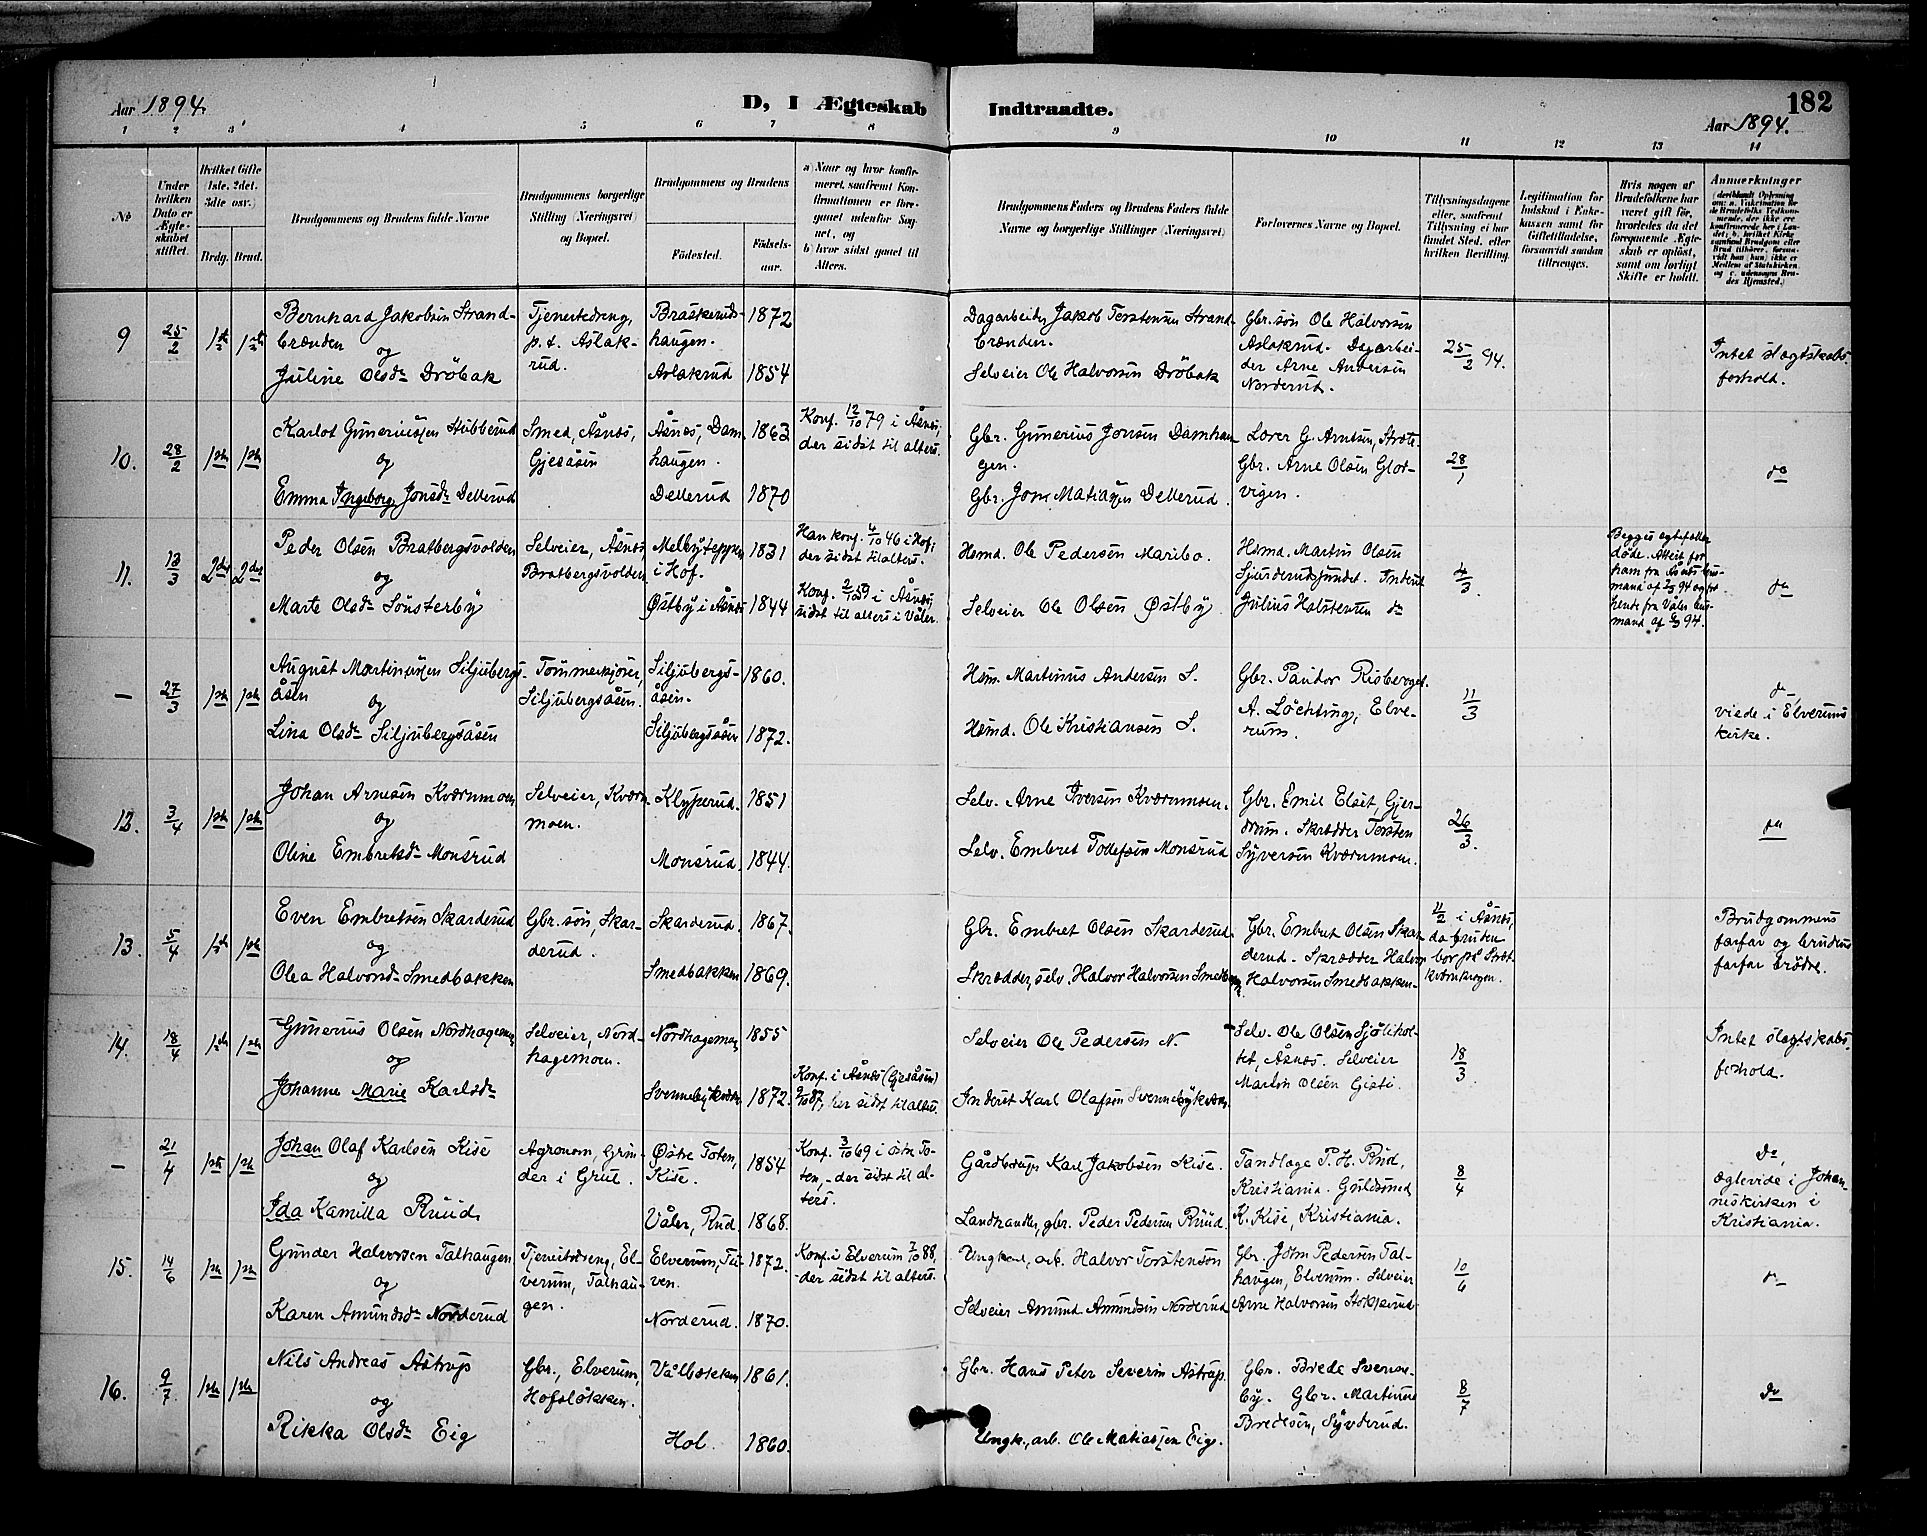 Aar 1894.
D, I Ægteskab Indtraadte.
182
Aar 1894.
1 2 3 4 5 6 7 8 9 10 11 12 13 14
No
Under hvilken Dato er Ægteskabet stiftet.
Hvilket Gifte (1ste, 2det, 3dte osv.)
Brdg. Brud.
Brudgommens og Brudens fulde Navne
Brudgommens borgerlige Stilling (Næringsvei) og Bopæl.
Brudgommens og Brudens
Fødested.
Fødselsaar.
a) Naar og hvor konfirmeret, saafremt Konfirmationen er foregaaet udenfor Sognet, og
b) hvor sidst gaaet til Alters.
Brudgommens Faders og Brudens Faders fulde Navne og borgerlige Stillinger (Næringsvei)
Forlovernes Navne og Bopæl.
Tillysningsdagene eller, saafremt Tillysning ei har fundet Sted, efter hvilken Bevilling.
Legitimation for Indskud i Enkekassen samt for Giftetilladelse, forsaavidt saadan tiltrænges.
Hvis nogen af Brudefolkene har været gift før, hvorledes da det foregaaende Ægteskab er opløst, samt om lovligt Skifte er holdt.
Anmærkninger
9
25/2
1ste 1ste
Bernhard Jakobsen Strand-
brænden
og
Juline Olsdr Dröbak
Tjenestedreng,
p.t. Aslak-
rud.
Braskeruds-
haugen.
Aslakrud
1872
1854
Dagarbeider Jakob Torstensen Strand-
brænden.
Selveier Ole Halvorsen Dröbak
Gbr.sön Ole Halvorsen
Aslakrud. Dagarbei-
der Arne Andersen
Norderud.
25/2 94.
Intet slægtskabs-
forhold.
10.
28/2
1ste 1ste
Karlot Gunerius[s]en Stubberud
og
Emma Ingeborg Jonsdr Dellerud
Smed, Åsnes,
Gjesåsen
Åsnæs, Dam-
haugen.
Dellerud
1863
1870
Konf. 12/10 79 i Åsnæs,
der sidst til alters.
Gbr. Gunerius Jonsen Damhau-
gen.
Gbr. Jon Matiassen Dellerud.
Lærer G. Arntsen,
Gbr. Arne Olsen Glot-
vigen.
28/1
do
11.
13/3
2det 2det
Peder Olsen Bratbergsvolden
og
Marte Olsdr Sönsterby
Selveier, Åsnæs
Bratbergsvolden
Melbyteppen
i Hof.
Östby i Åsnæs
1831
1844
Han konf. 4/10 46 i Hof,
der sidst til alters.
Konf. 2/10 59 i Åsnæs,
sidst til alters i Våler.
Hsmd. Ole Pedersen Maribo.
Selveier Ole Olsen Östby.
Hsmd. Martin Olsen
Sjurderudsjundet. Inderst
Julius Halstensen do
4/3.
Begges egtefæller
döde. Attest for
ham fra Åsnæs lens-
mand af 2/3 94 og for
hende fra Våler lens-
mand af 94.
do
—
27/3
1ste 1ste
August Martinussen Siljubergs-
åsen
og
Lina Olsdr Siljubergsåsen
Tömmerkjörer,
Siljubergsåsen.
Siljubergs-
åsen.
Siljubergsåsen
1860.
1872.
Hsm. Martinus Andersen S.
Hsmd. Ole Kristiansen S.
Gbr. Pauder Risberget.
A. Löchting, Elve-
rum.
11/3
do
viede i Elverums
kirke.
12.
3/4
1ste 1ste
Johan Arnesen Kværnmoen
og
Oline Embretsdr Monsrud
Selveier, Kværn-
moen.
Klyperud.
Monsrud.
1851
1844.
Selv. Arne Iversen Kværnmoen.
Selv. Embret Tollefsen Monsrud
Gbr. Emil Elset, Gjer-
drum. Skrædder Torsten
Syversen Kværnmoen.
26/3.
do
13.
5/4
1ste 1ste
Even Embretsen Skarderud
og
Olea Halvorsdr Smedbakken
Gbr.sön, Skar-
derud.
Skarderud.
Smedbakken
1867.
1869.
Gbr. Embret Olsen Skarderud.
Skrædder, selv. Halvor Halvorsen Smedbakken
Gbr. Embret Olsen Skar-
derud. Skrædder Halvor
Halvorsen Smedbakken.
11/2 i Åsnæs,
da bruden
bor på
Brudgommens
farfar og brudens
farfar brödre.
14.
18/4
1ste 1ste
Gunerius Olsen Nordhagemoen
og
Johanne Marie Karlsdr
Selveier, Nord-
hagemoen.
Nordhagemoen
Svennebykværn
1855
1872.
Konf. i Åsnæs (Gjesåsen)
9/10 87, her sidst til alters.
Selveier Ole Pedersen N.
Inderst Karl Olafsen Svennebykværn.
Selv. Ole Olsen Sjölihol-
tet, Åsnæs. Selveier
Martin Olsen Gisti.
18/3
Intet slægtskabs-
forhold.
—
21/4
1ste 1ste
Johan Olaf Karlsen Kise
og
Ida Kamilla Ruud.
Agronom, Grin-
der i Grue.
Östre Toten,
Kise.
Våler, Rud
1854
1868.
Konf. 3/10 69 i östre To-
ten, - der sidst til al-
ters.
Gårdbruger Karl Jakobsen Kise.
Landhandler, gbr. Peder Pedersen Ruud.
Tandlæge P. H. Rud,
Kristiania. Guldsmed
K. Kise, Kristiania.
8/4
Do,
ægteviede i Johan-
neskirken i
Kristiania.
15.
14/6
1ste 1ste
Gunder Halvorsen Talhaugen
og
Karen Amundsdr Norderud
Tjenestedreng, El-
verum, Talhau-
gen.
Elverum, Tu-
ven.
Norderud.
1872.
1870.
Konf. i Elverum 7/10 88,
- der sidst til alters.
Ungkarl, arb. Halvor Torstensen
Selveier Amund Amundsen Norderud
Gbr. John Pedersen Tal-
haugen, Elverum. Selveier
Arne Halvorsen Stokkerud.
10/6
do
16.
9/7.
1ste 1ste
Nils Andreas Astrup
og
Rikka Olsdr Eig
Gbr., Elverum,
Hoflökken.
Vålbækken
Hol.
1861.
1860.
Gbr. Hans Peter Severin Astrup.
Ungk., arb. Ole Matiassen Eig.
Gbr. Brede Svenne-
by. Gbr. Martinus
Bredesen, Syvderud.
8/7
do